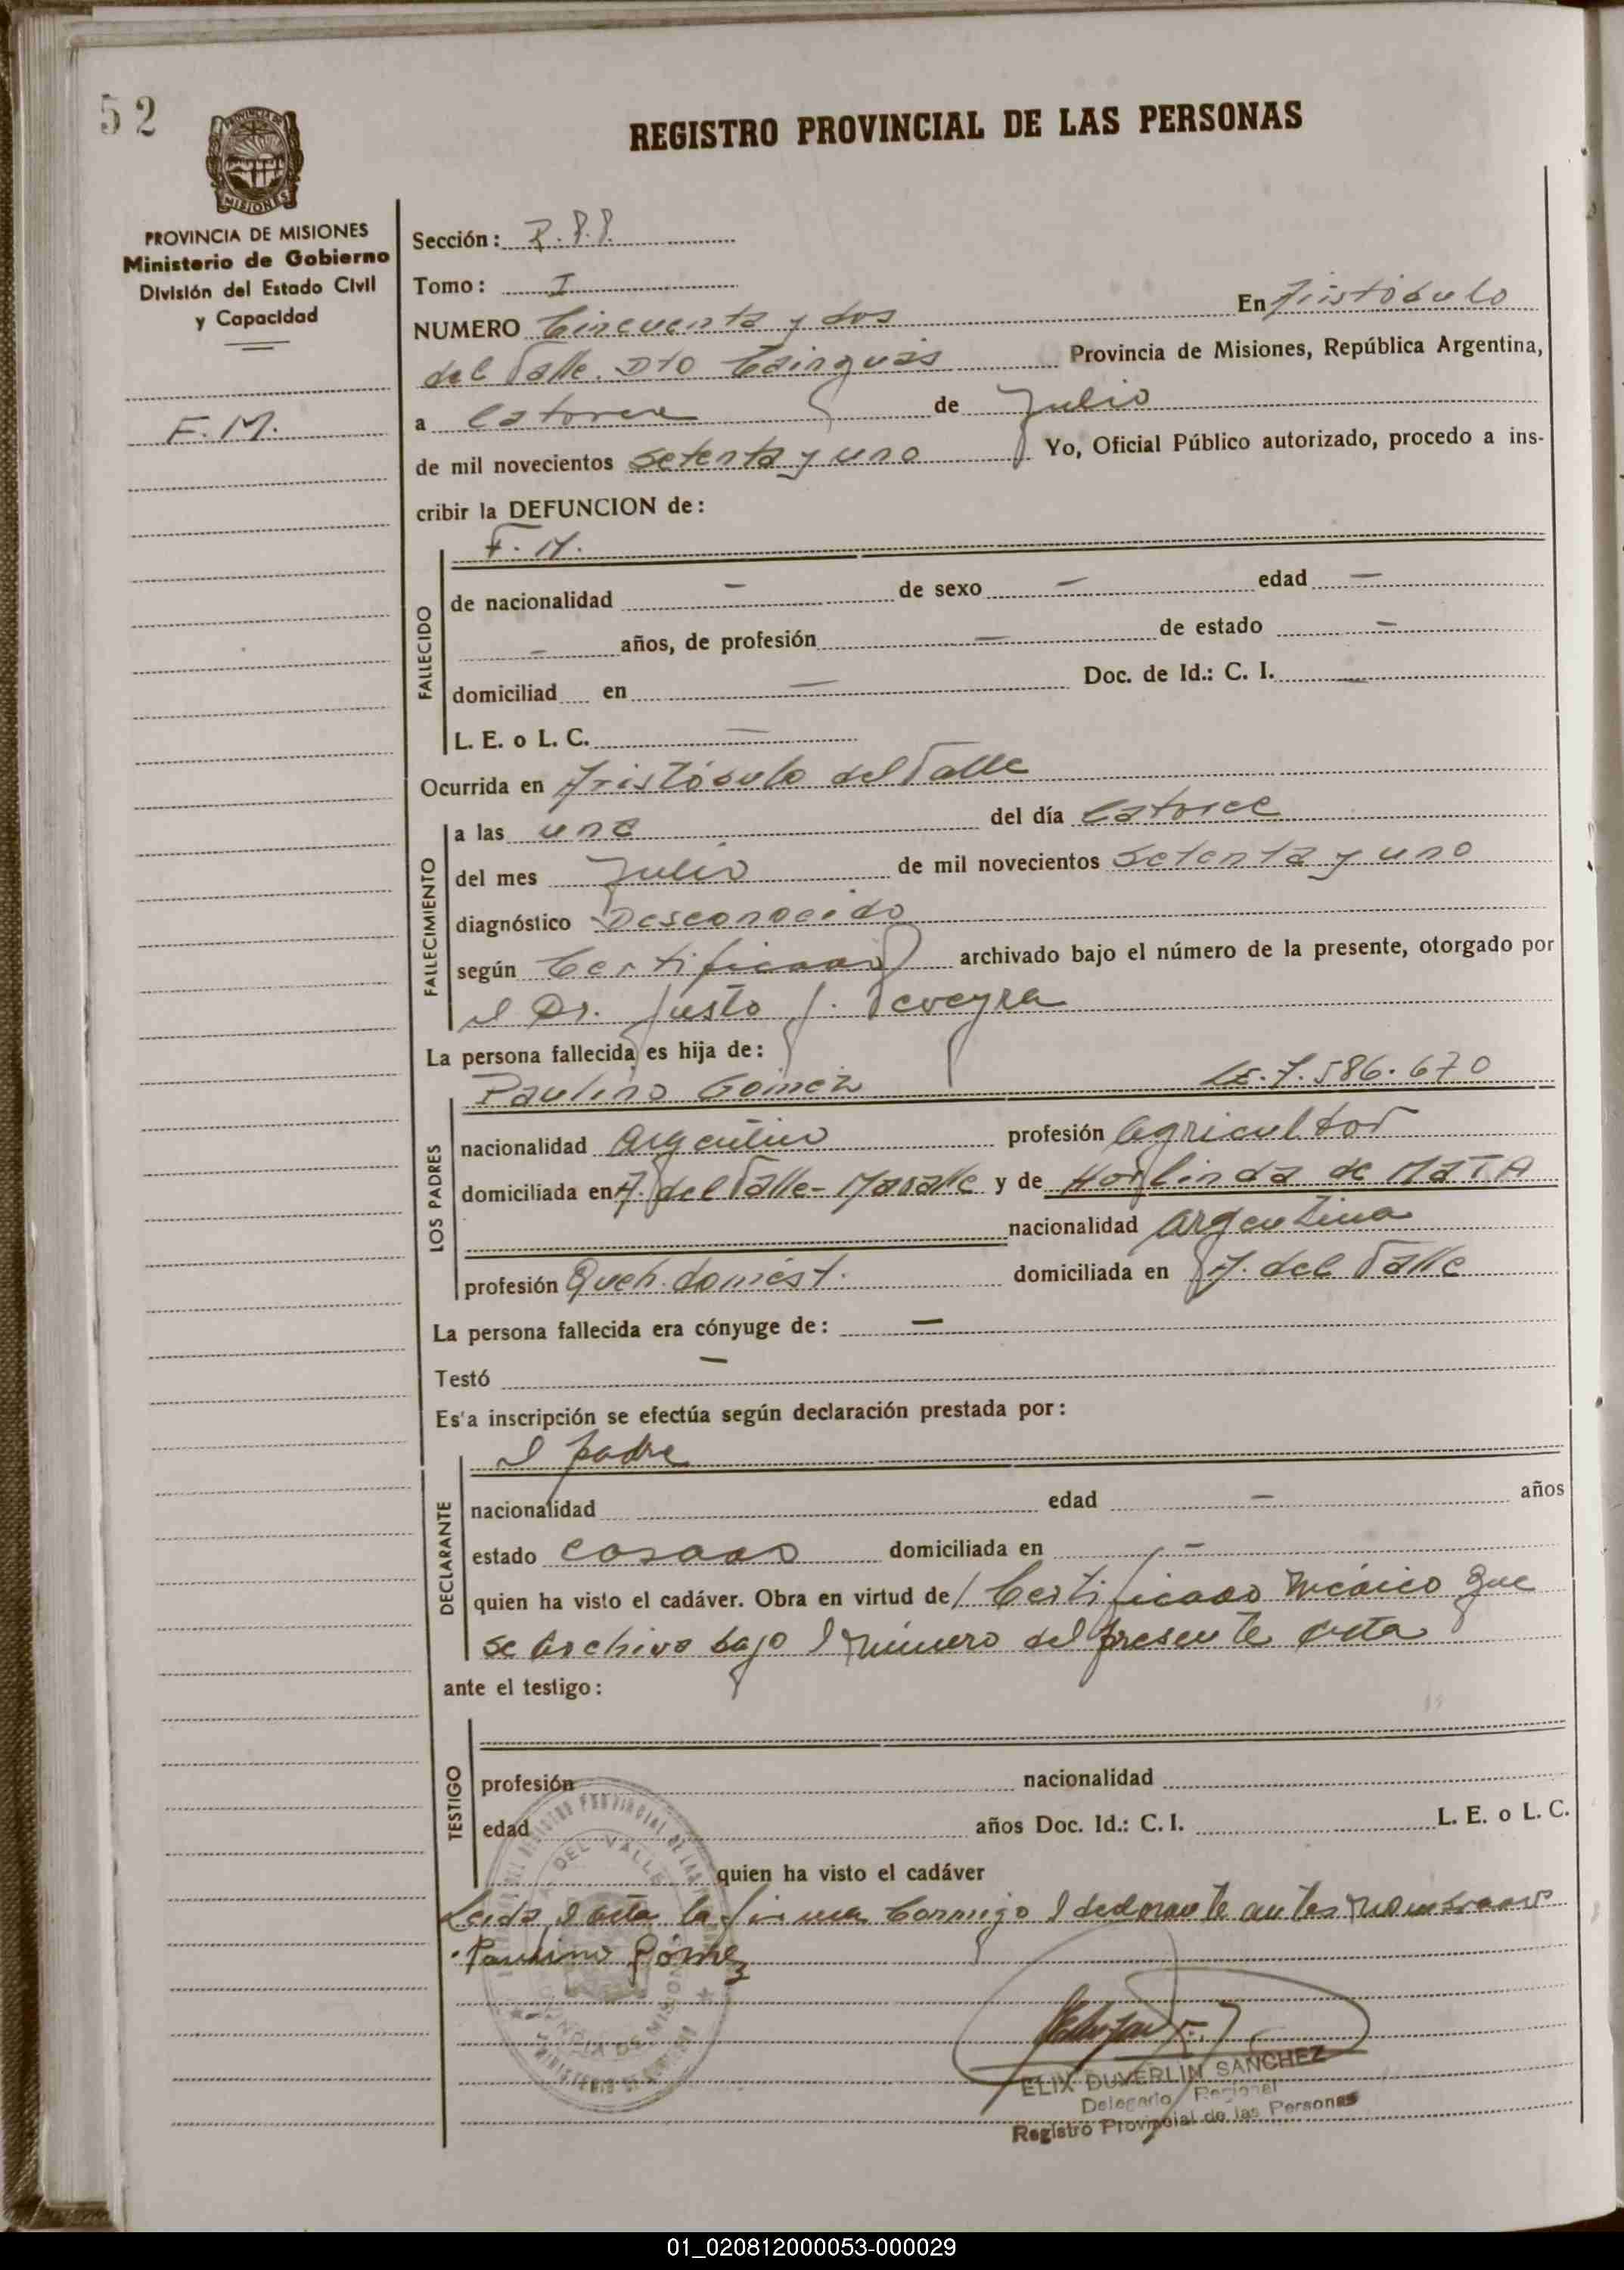 52
REGISTRO PROVINCIAL DE LAS PERSONAS
PROVINCIA DE MISIONES
Ministerio de Gobierno
División del Estado Civil
y Capacidad
F. M.
Sección:
Tomo: I
NUMERO Cincuenta y dos En Aristóbulo
del Valle. Dto Cainguás Provincia de Misiones, República Argentina,
a catorce de Julio
de mil novecientos setenta y uno Yo, Oficial Público autorizado, procedo a ins-
cribir la DEFUNCION de:
F. M.
FALLECIDO
de nacionalidad — de sexo — edad —
— años, de profesión — de estado —
domiciliad en — Doc. de Id.: C. I. —
L. E. o L. C. —
Ocurrida en Aristóbulo del Valle
FALLECIMIENTO
a las una del día catorce
del mes Julio de mil novecientos setenta y uno
diagnóstico Desconocido
según Certificado archivado bajo el número de la presente, otorgado por
el Dr. Justo J.
La persona fallecida es hija de:
LOS PADRES
Paulino Gómez LE. 7.586.670
nacionalidad argentino profesión agricultor
domiciliada en A. del Valle - y de Horlinda de MATA
nacionalidad argentina
profesión Queh. domést. domiciliada en A. del Valle
La persona fallecida era cónyuge de: —
Testó —
Es'a inscripción se efectúa según declaración prestada por:
DECLARANTE
el padre
nacionalidad edad — años
estado casado domiciliada en —
quien ha visto el cadáver. Obra en virtud de Certificado médico que
se archiva bajo el número del presente acta
ante el testigo:
TESTIGO
profesión nacionalidad
edad años Doc. Id.: C. I. L. E. o L. C.
quien ha visto el cadáver
Leida el acta la firma conmigo el declarante antes nombrado
Paulino Gómez
ELIX DUVERLIN SANCHEZ
Delegado Regional
Registro Provincial de las Personas
01_020812000053-000029